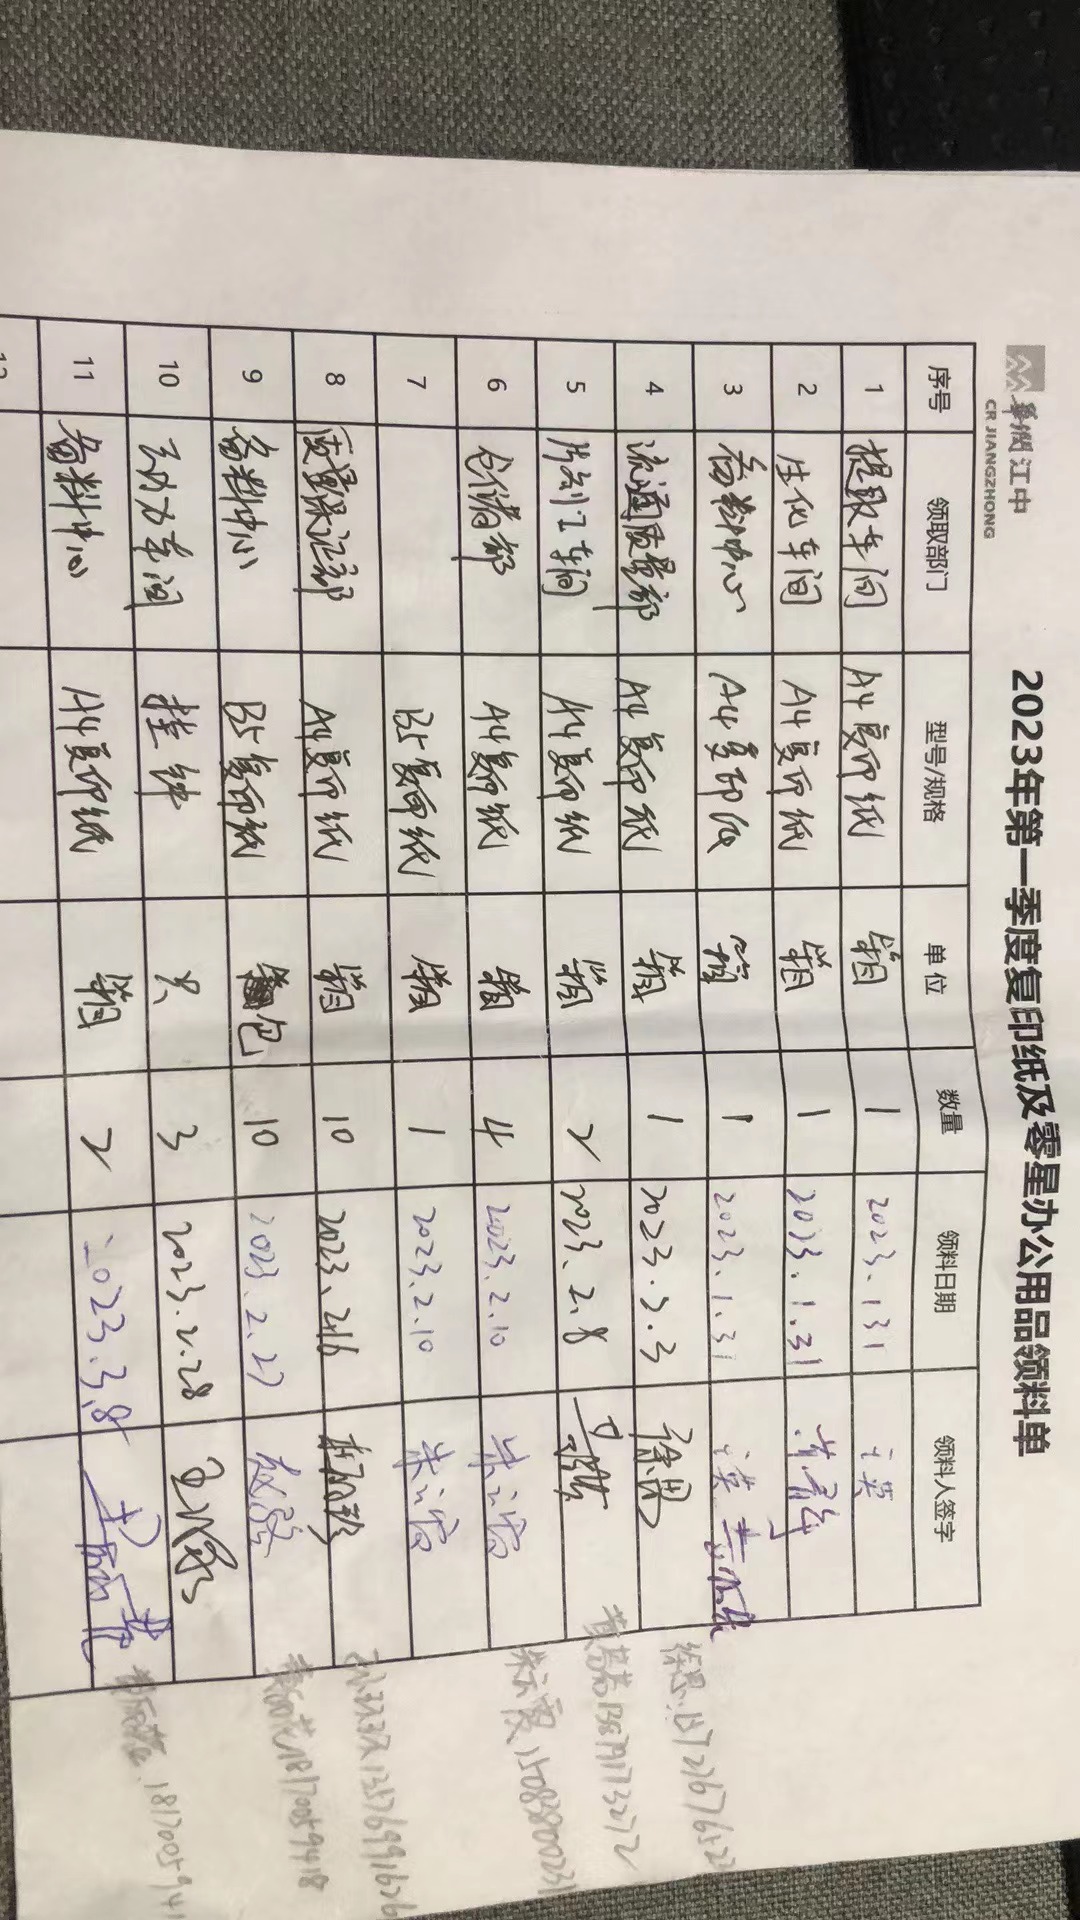 華潤江中
CR JIANGZHONG
2023年第一季度复印纸及零星办公用品领料单
序号 领取部门 型号/规格 单位 数量 领料日期 领料人签字
1 提取车间 A4复印纸 箱 1 2023.1.31
2 生化车间 A4复印纸 箱 1 2023.1.31
3 备料中心 A4复印纸 箱 1 2023.1.31
4 流通质量部 A4复印纸 箱 1 2023.2.3 徐恩
5 片剂I车间 A4复印纸 箱 2 2023.2.8
6 仓储部 A4复印纸 箱 4 2023.2.10 朱云霞
7 B5复印纸 箱 1 2023.2.10 朱云霞
8 质量保证部 A4复印纸 箱 10 2023.2.16
9 备料中心 B5复印纸 包 10 2023.2.27
10 动力车间 3 2023.2.28
11 备料中心 A4复印纸 箱 2 2023.3.8
12
徐恩
朱云霞 15083800231
13576991626
18170059418